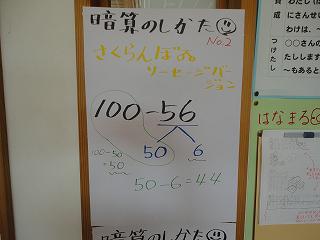 暗算のしかた
No.2
さくらんぼ
ソーセージバー
ジョン
100-56
50 6
100-50
=50
50-6=44
暗算のしかた
成
つけたし
わたし
にさんせい
わけは、
○○さんの
たします
~もあると
はなまる